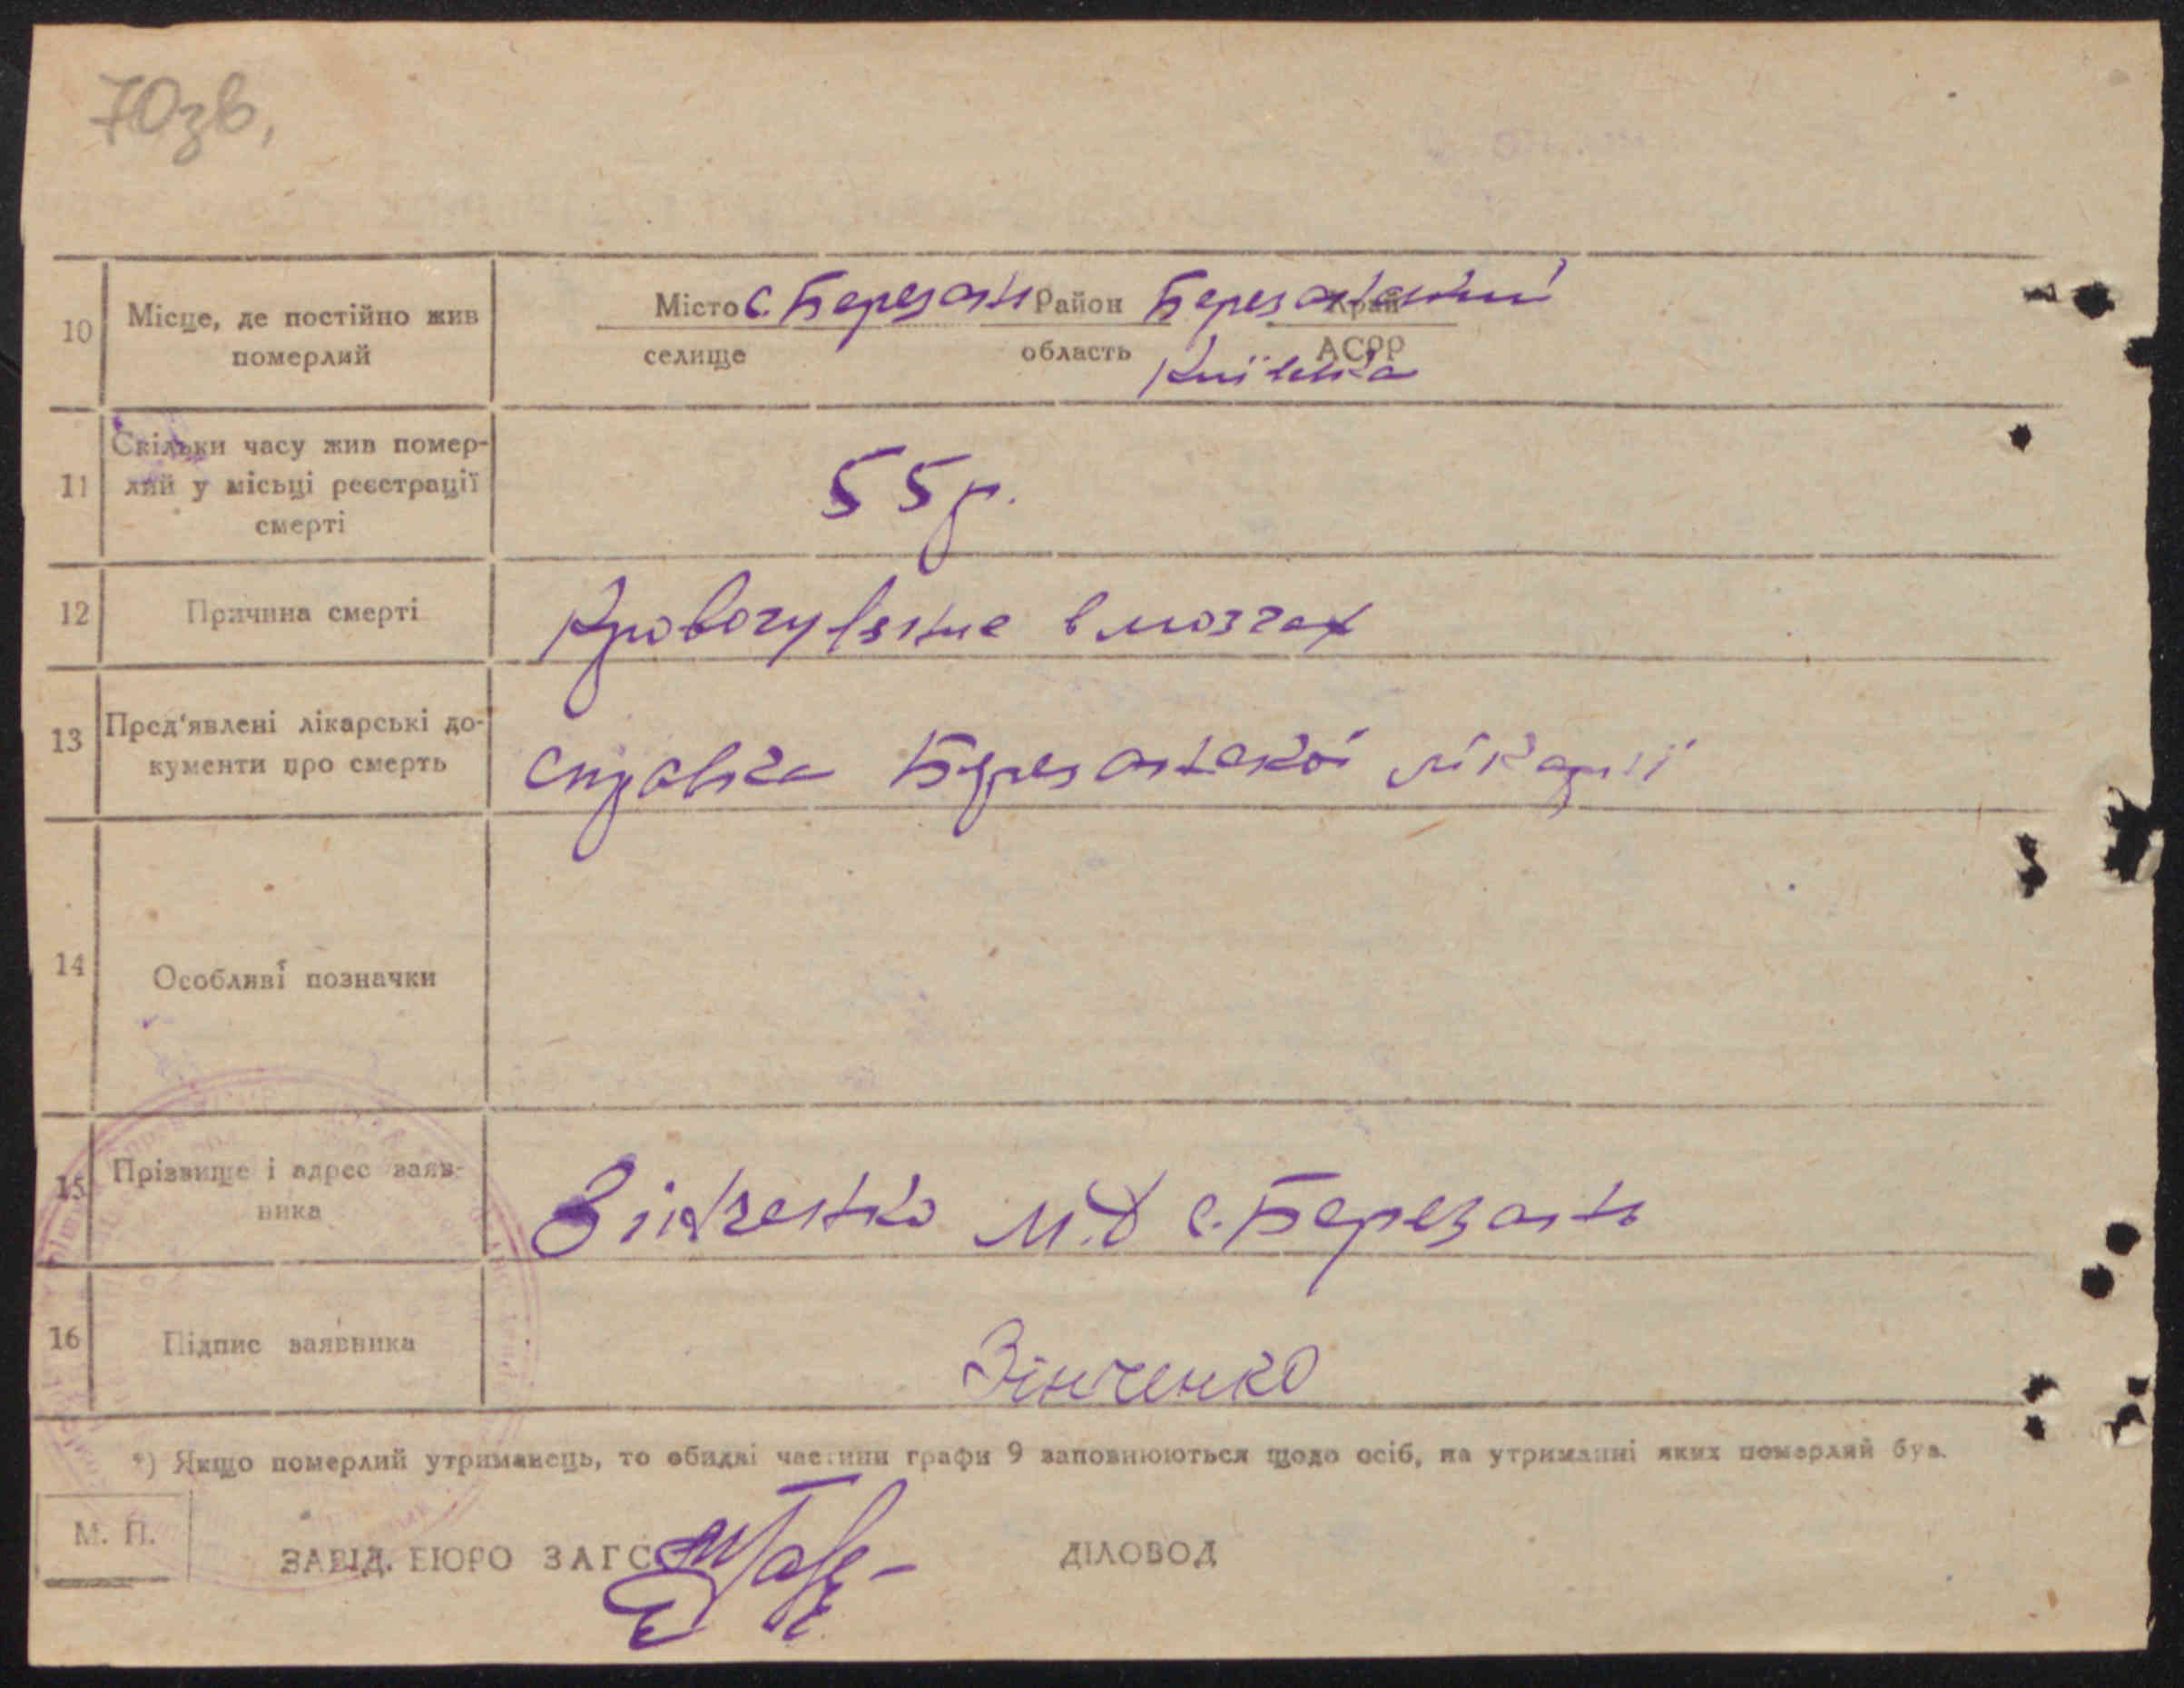 70зв,
10 Місце, де постійно жив померлий
Місто с. Березань Район Березанський Край
селище область Київська АСРР
11 Скільки часу жив помер-
лий у місьці реєстрації
смерті
55 р.
12 Причина смерті
в мозгах
13 Пред'явлені лікарські до-
кументи про смерть
справка Березанской лікарнї
14 Особливі позначки
15 Прізвище і адрес заяв-
ника
Зінченко М.Д с. Березань
16 Підпис заявника
Зінченко
*) Якщо померлий утриманець, то обидві частини графи 9 заповнюються щодо осіб, на утриманні яких померлий був.
М. П.
ЗАВІД. БЮРО ЗАГС ДІЛОВОД